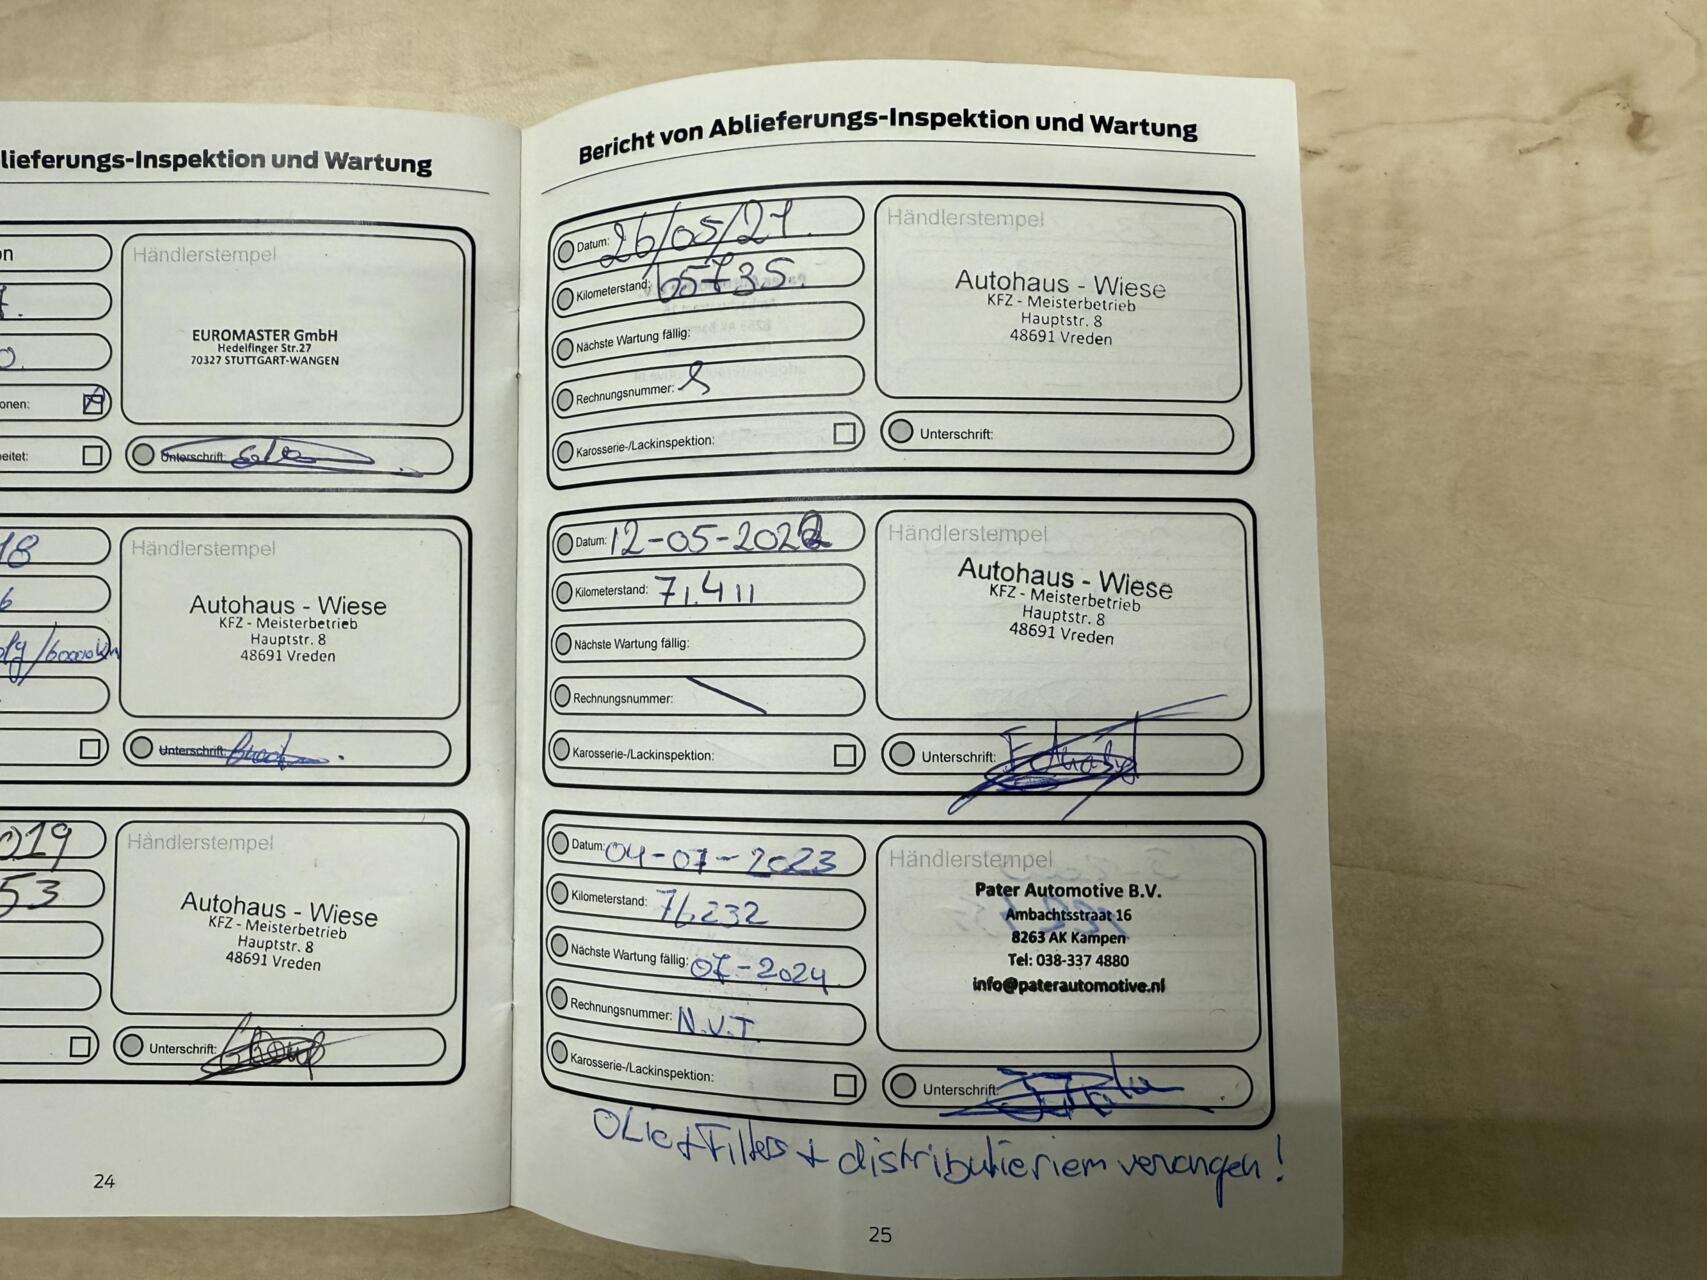 lieferungs-Inspektion und Wartung
on
Händlerstempel
EUROMASTER GmbH
Hedelfinger Str.27
70327 STUTTGART-WANGEN
onen:
eitet:
Unterschrift:
18
6
/60000km
Händlerstempel
Autohaus - Wiese
KFZ - Meisterbetrieb
Hauptstr. 8
48691 Vreden
Unterschrift:
019
53
Händlerstempel
Autohaus - Wiese
KFZ - Meisterbetrieb
Hauptstr. 8
48691 Vreden
Unterschrift:
24
Bericht von Ablieferungs-Inspektion und Wartung
Datum: 26/05/21.
Kilometerstand: 65735.
Nächste Wartung fällig:
Rechnungsnummer:
Karosserie-/Lackinspektion:
Händlerstempel
Autohaus - Wiese
KFZ - Meisterbetrieb
Hauptstr. 8
48691 Vreden
Unterschrift:
Datum: 12-05-2022
Kilometerstand: 71.411
Nächste Wartung fällig:
Rechnungsnummer:
Karosserie-/Lackinspektion:
Händlerstempel
Autohaus - Wiese
KFZ - Meisterbetrieb
Hauptstr. 8
48691 Vreden
Unterschrift:
Datum: 04-07-2023
Kilometerstand: 76232
Nächste Wartung fällig: 07-2024
Rechnungsnummer: N.V.T.
Karosserie-/Lackinspektion:
Händlerstempel
Pater Automotive B.V.
Ambachtsstraat 16
8263 AK Kampen
Tel: 038-337 4880
info@paterautomotive.nl
Unterschrift:
OLie+Filters + distributieriem vervangen!
25